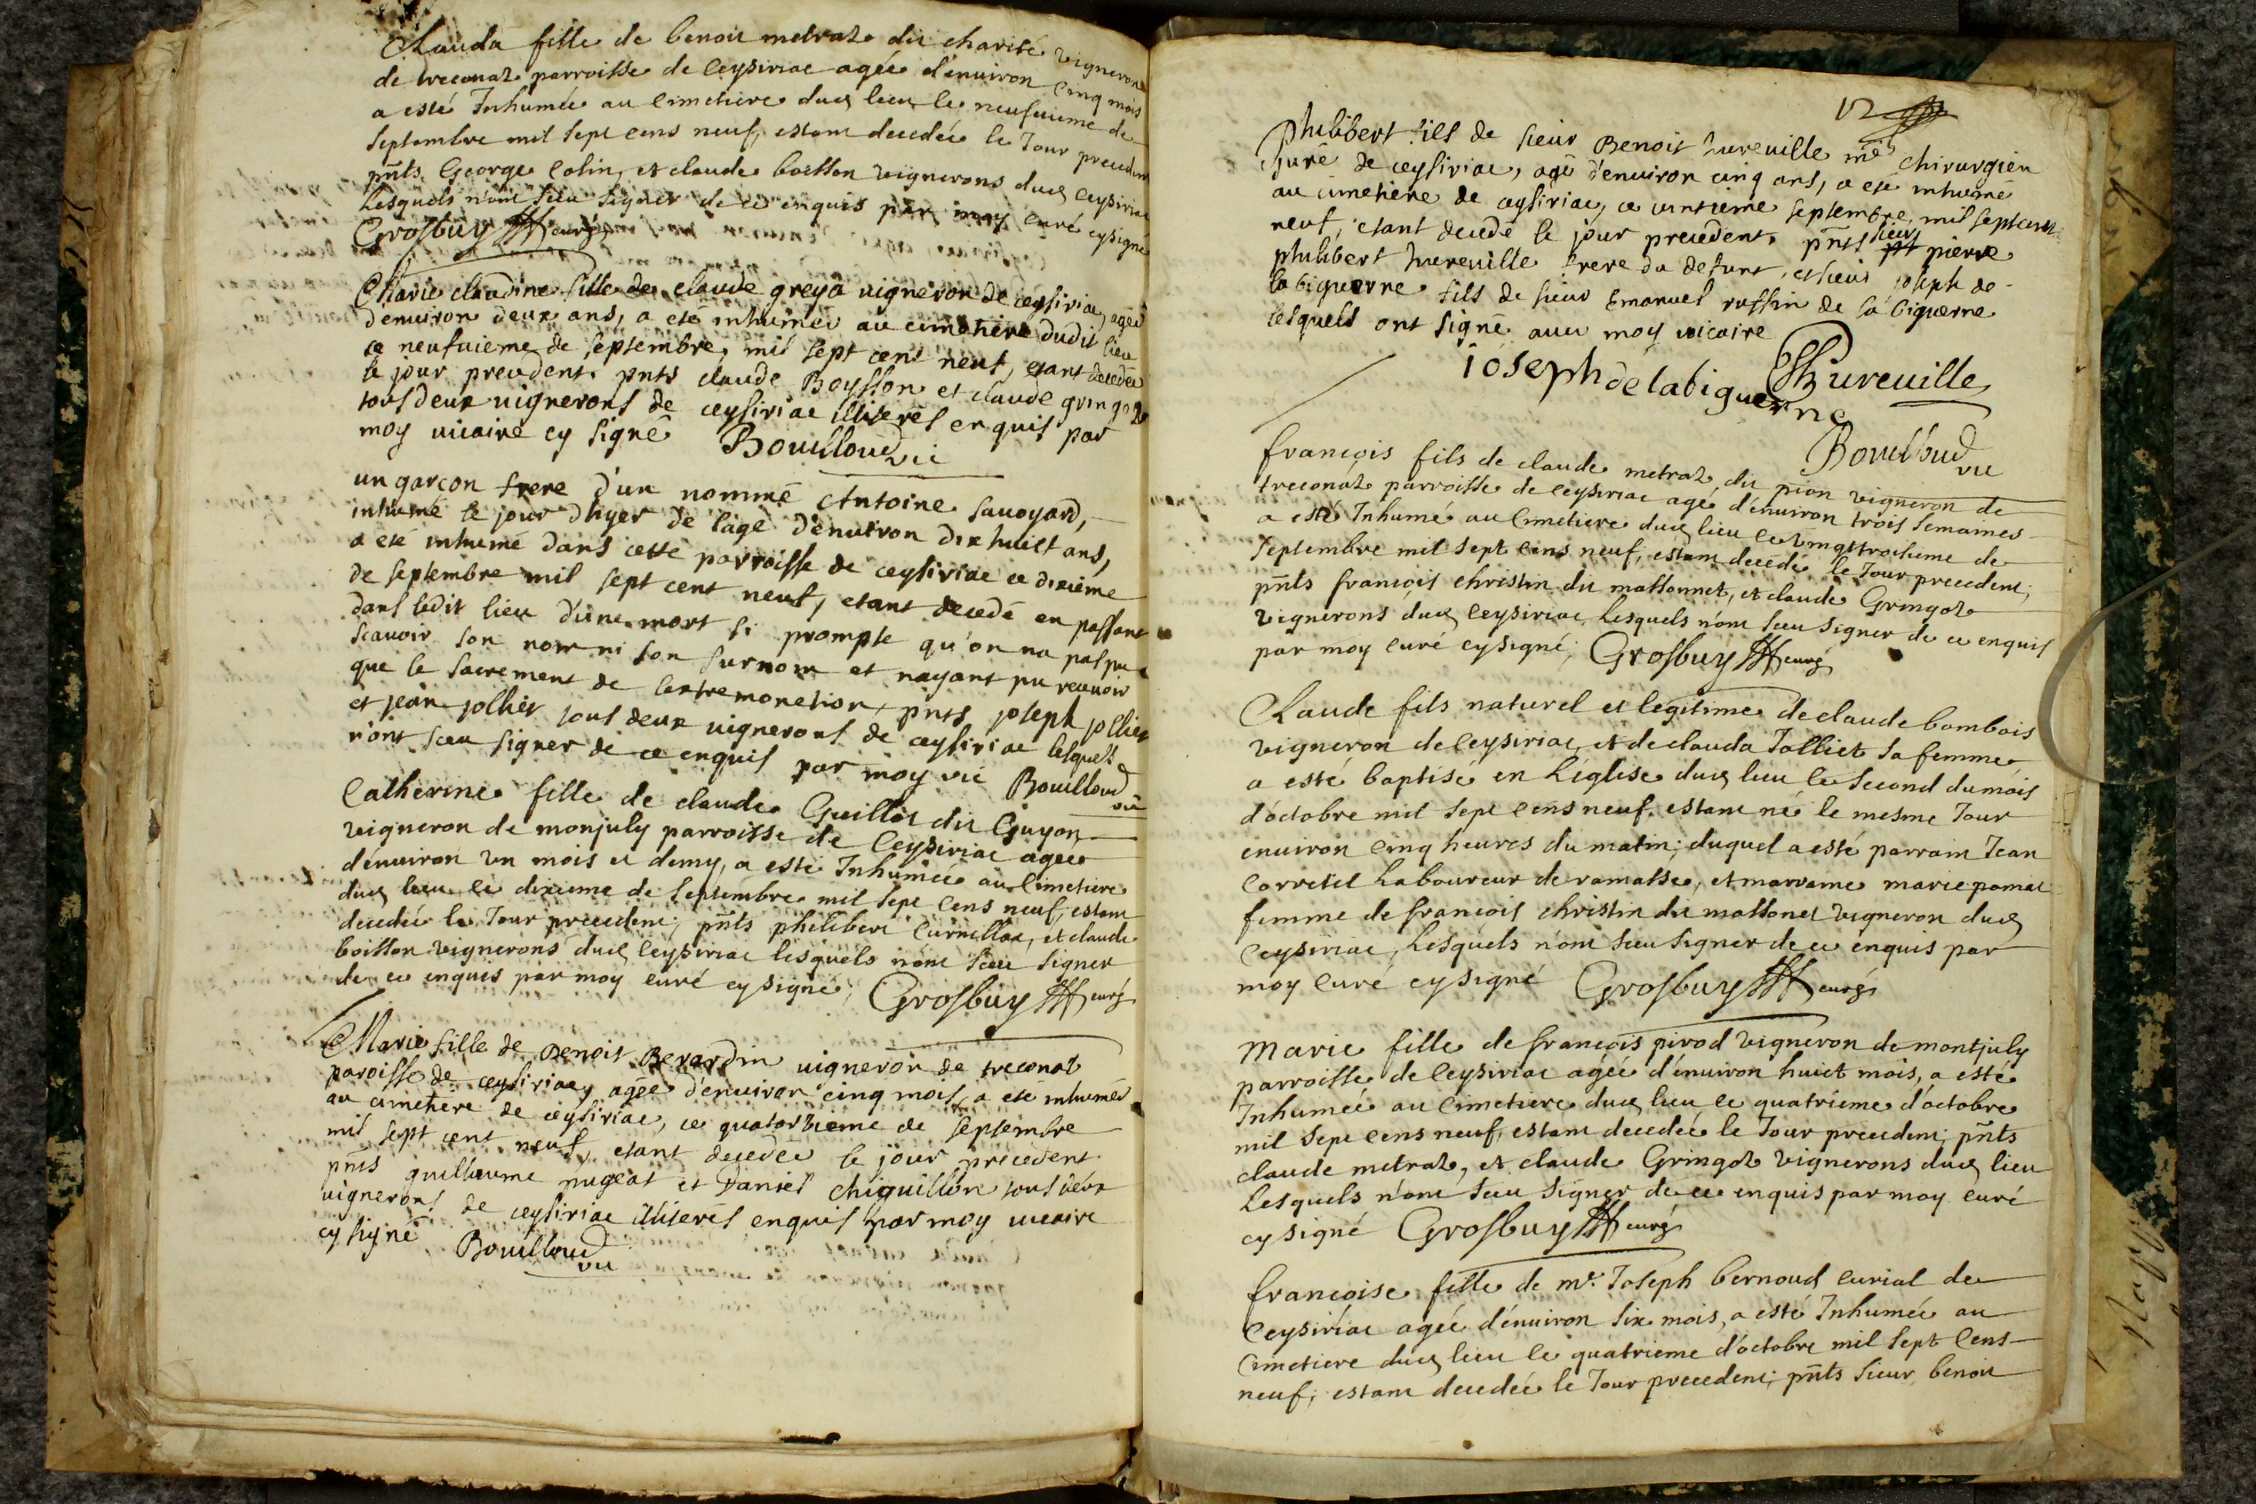 Clauda fille de benoit metraz dit charité vigneron
de treconaz parroisse de Ceysiriac agée d'enuiron cinq mois
a esté Inhumée au Cimetiere dud lieu le neufuieme de
Septembre mil sept cens neuf, estant decedée le Jour precedent
pnts George Colin, et claude boisson vignerons dud Ceysiriac
Lesquels n'ont sceu signer de ce enquis par moy curé cysigné
Grosbuy curé
Marie claudine fille de claude greya uigneron de ceysiriac, agée
denuiron deux ans, a eté inhumée au cimetiere dudit lieu
ce neufuieme de septembre, mil sept cent neuf, etant decedée
le jour precedent. pnts claude Boysson et claude gringoz
tous deux uignerons de ceysiriac illiterés enquis par
moy uicaire cy signé Bouilloud vic
un garçon frere d'un nommé Antoine sauoyard,
inhumé le jour dhyer de l'age d'enuiron dix huict ans,
a eté inhumé dans cette parroisse de ceysiriac ce dixieme
de septembre mil sept cent neuf, etant decedé en passant
dans ledit lieu d'une mort si prompte qu'on na pas pu
scauoir son nom ni son surnom et nayant pu receuoir
que le sacrement de lextremonction, pnts joseph jollier
et jean jollier tous deux uignerons de ceysiriac lesquels
n'ont sceu signer de ce enquis par moy vic Bouilloud
vic
Catherine fille de claude Guillot dit Guyon
vigneron de monjuly parroisse de Ceysiriac agée
d'enuiron vn mois et demy, a esté Inhumée au Cimetiere
dud lieu le dixieme de Septembre mil sept cens neuf, estant
decedée le Jour precedent; pnts philibert Curnillon, et claude
boisson vignerons dud Ceysiriac lesquels n'ont sceu signer
de ce enquis par moy curé cysigné, Grosbuy curé
Marie fille de Benoit Berardin uigneron de treconat
paroisse de ceysiriac, agée d'enuiron cinq mois, a eté inhumée
au cimetiere de ceysiriac, ce quatorzieme de septembre
mil sept cent neuf, etant decedée le jour precedent
pnts guillaume nugeat et Daniel chiquillon tous deux
uignerons de ceysiriac illiterés enquis par moy uicaire
cy signé Bouilloud
vic
12
Philibert fils de sieur Benoit hureuille me chirurgien
Juré de ceysiriac, agé d'enuiron cinq ans, a eté inhumé
au cimetiere de ceysiriac, ce uintieme septembre, mil sept cent
neuf, etant decedé le jour precedent. pnts sieur pierre
philibert hureuille frere du defunt, et sieur joseph de
labiguerne fils de sieur Emanuel ruffin de la biguerne
lesquels ont signé auec moy uicaire
ioseph delabiguerne Hureuille
Bouilloud
vic
francois fils de claude metraz dit pion vigneron de
treconaz parroisse de Ceysiriac agé d'enuiron trois semaines
a esté Inhumé au Cimetiere dud lieu le vingttroisieme de
Septembre mil sept cens neuf, estant decedé le Jour precedent;
pnts francois christin dit massonnet, et claude Gringoz
vignerons dud Ceysiriac Lesquels n'ont sceu signer de ce enquis
par moy curé cysigné, Grosbuy curé
Claude fils naturel et legitime de claude bombois
vigneron de Ceysiriac, et de clauda Jolliet sa femme
a esté baptisé en L'église dud lieu le second du mois
d'octobre mil sept cens neuf, estant né le mesme Jour
enuiron cinq heures du matin; duquel a esté parrain Jean
Corretel Laboureur de ramasse, et marrame marie pomat
femme de francois christin dit massonet vigneron dud
Ceysiriac, Lesquels n'ont sceu signer de ce enquis par
moy Curé cysigné Grosbuy curé
Marie fille de francois pirod vigneron de montjuly
parroisse de Ceysiriac agée d'enuiron huict mois, a esté
Inhumée au Cimetiere dud lieu le quatrieme d'octobre
mil sept cens neuf, estant decedée le Jour precedent; pnts
claude metraz, et claude Gringoz vignerons dud lieu
Lesquels n'ont sceu signer de ce enquis par moy curé
cysigné Grosbuy curé
francoise fille de mr. Joseph bernoud curial de
Ceysiriac agée d'enuiron six mois, a esté Inhumée au
Cimetiere dud lieu le quatrieme d'octobre mil sept Cens
neuf, estant decedée le Jour precedent; pnts sieur benoit